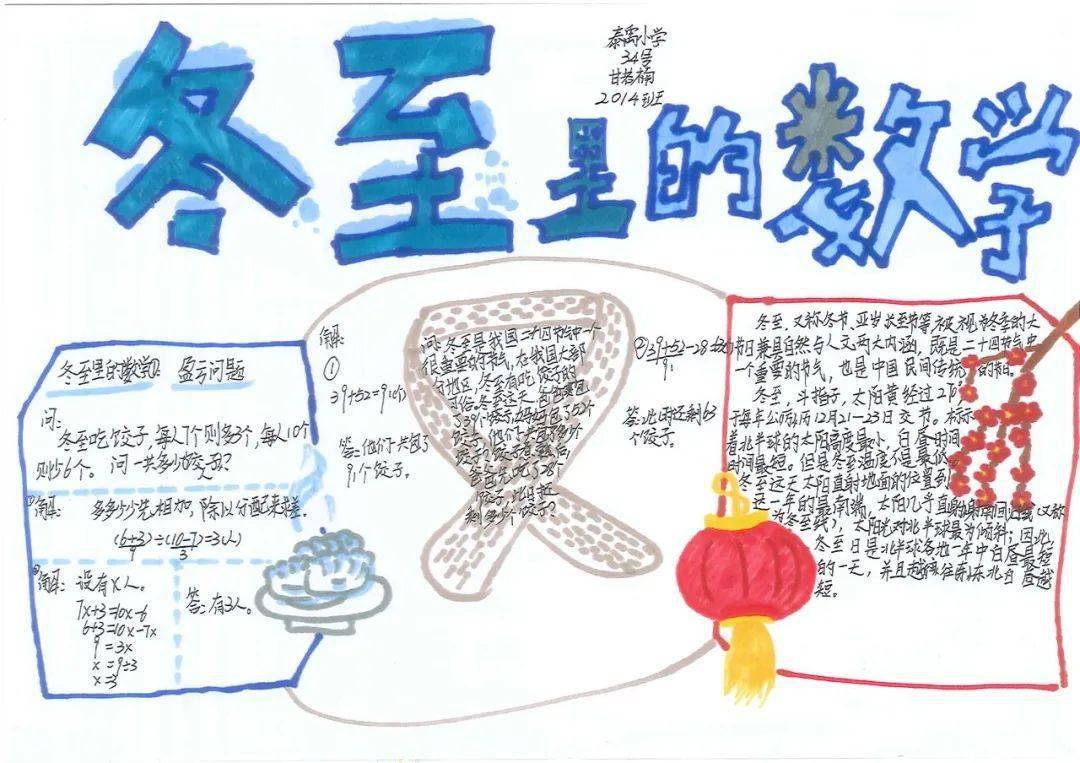 冬至里的数学
泰禹小学
34号
2014班
冬至里的数学①: 盈亏问题
问:
冬至吃饺子,每人7个则多3个,每人10个
则少6个。问一共多少
①解: 多多少少先相加,除以分配来求差.
(6+3)÷(10-7)=3(人)
9 3
②解: 设有x人。
7x+3=10x-6
6+3=10x-7x
9=3x
x=9÷3
x=3
答:有3人。
解:
①
39+52=91(个)
答:他们一共包了
91个饺子。
问:冬至是我国二十四节气中一个
很重要的节气,在我国大部
分地区,冬至有吃饺子的
习俗。冬至这天,爸爸包
②39+52-28=63(个)
91
答:此时还剩63
个饺子。
冬至,又称冬节、亚岁、长至节等,被视为冬季的大
节日兼具自然与人文两大内涵,既是二十四节气中
一个重要的节气,也是中国民间传统的节日。
冬至,斗指子,太阳黄经过270°,
于每年公历12月21-23日交节。标示
着北半球的太阳高度最小,白昼时间
时间最短。但是冬至温度不是最低。
冬至这天太阳直射地面的位置到
达一年的最南端,太阳几乎直射南回归线(又称
为冬至线),太阳光对北半球最为倾斜;因此,
冬至日是北半球各地一年中白昼最短
的一天,并且越往北白昼越
短。